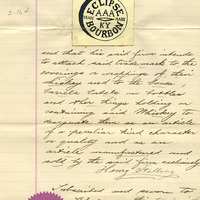 2-162
ECLIPSE
TRADE AAA MARK
KY
BOURBON
and that his said firm intends
to attach said trade mark to the
coverings or wrappings of their
whiskey and to the boxes,
barrels labels on bottles
and other things holding or
containing said Whiskey to
designate them as an article
of a peculiar kind character
or quality and as an
article manufactured and
sold by the said firm exclusively
Henry
Subscribed and sworn to